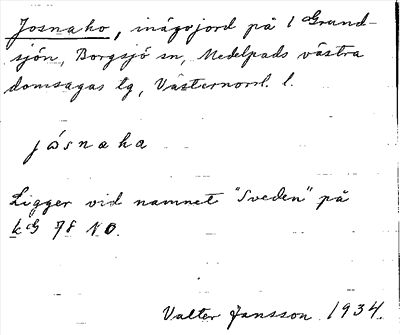 Josnaho, inägojord på 1 Grund-
sjön, Borgsjö sn, Medelpads västra
domsagas tg, Västernorrl. l.
jósnaha
Ligger vid namnet "Sveden" på
78 NO.
Valter Jansson 1934.